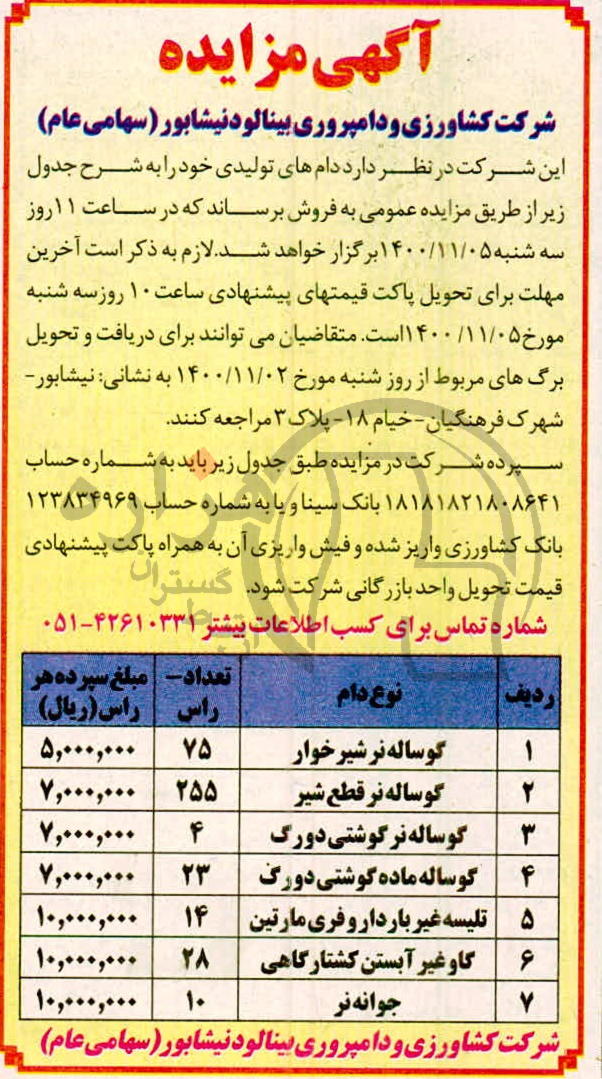 آگهی مزایده
شرکت کشاورزی و دامپروری بینالود نیشابور (سهامی عام)
این شرکت در نظر دارد دام های تولیدی خود را به شرح جدول
زیر از طریق مزایده عمومی به فروش برساند که در ساعت ۱۱ روز
سه شنبه ۱۴۰۰/۱۱/۰۵ برگزار خواهد شد. لازم به ذکر است آخرین
مهلت برای تحویل پاکت قیمتهای پیشنهادی ساعت ۱۰ روز سه شنبه
مورخ ۱۴۰۰/۱۱/۰۵ است. متقاضیان می توانند برای دریافت و تحویل
برگ های مربوط از روز شنبه مورخ ۱۴۰۰/۱۱/۰۲ به نشانی: نیشابور-
شهرک فرهنگیان - خیام ۱۸ - پلاک ۳ مراجعه کنند.
سپرده شرکت در مزایده طبق جدول زیر باید به شماره حساب
۱۸۱۸۱۸۲۱۸۰۸۶۴۱ بانک سینا و یا به شماره حساب ۱۲۳۸۳۴۹۶۹
بانک کشاورزی واریز شده و فیش واریزی آن به همراه پاکت پیشنهادی
قیمت تحویل واحد بازرگانی شرکت شود.
شماره تماس برای کسب اطلاعات بیشتر ۴۲۶۱۰۳۳۱-۰۵۱
ردیف نوع دام تعداد- راس مبلغ سپرده هر راس (ریال)
۱ گوساله نر شیر خوار ۷۵ ۵,۰۰۰,۰۰۰
۲ گوساله نر قطع شیر ۲۵۵ ۷,۰۰۰,۰۰۰
۳ گوساله نر گوشتی دورگ ۴ ۷,۰۰۰,۰۰۰
۴ گوساله ماده گوشتی دورگ ۲۳ ۷,۰۰۰,۰۰۰
۵ تلیسه غیر باردار و فری مارتین ۱۴ ۱۰,۰۰۰,۰۰۰
۶ گاو غیر آبستن کشتارگاهی ۲۸ ۱۰,۰۰۰,۰۰۰
۷ جوانه نر ۱۰ ۱۰,۰۰۰,۰۰۰
شرکت کشاورزی و دامپروری بینالود نیشابور (سهامی عام)
هزاره
گستران